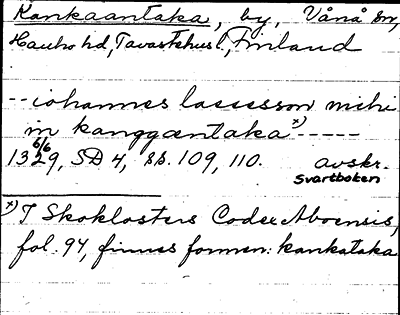 Kankaantaka, by, Vånå sn,
Hauho hd, Tavastehus l, Finland
-- iohannes lassesson mihi
in kanggæntaka x) -----
6/6
1329, SD 4, ss. 109, 110. avskr.
Svartboken
x) I Skoklosters Codex Aboensis,
fol. 94, finnes formen: kankataka